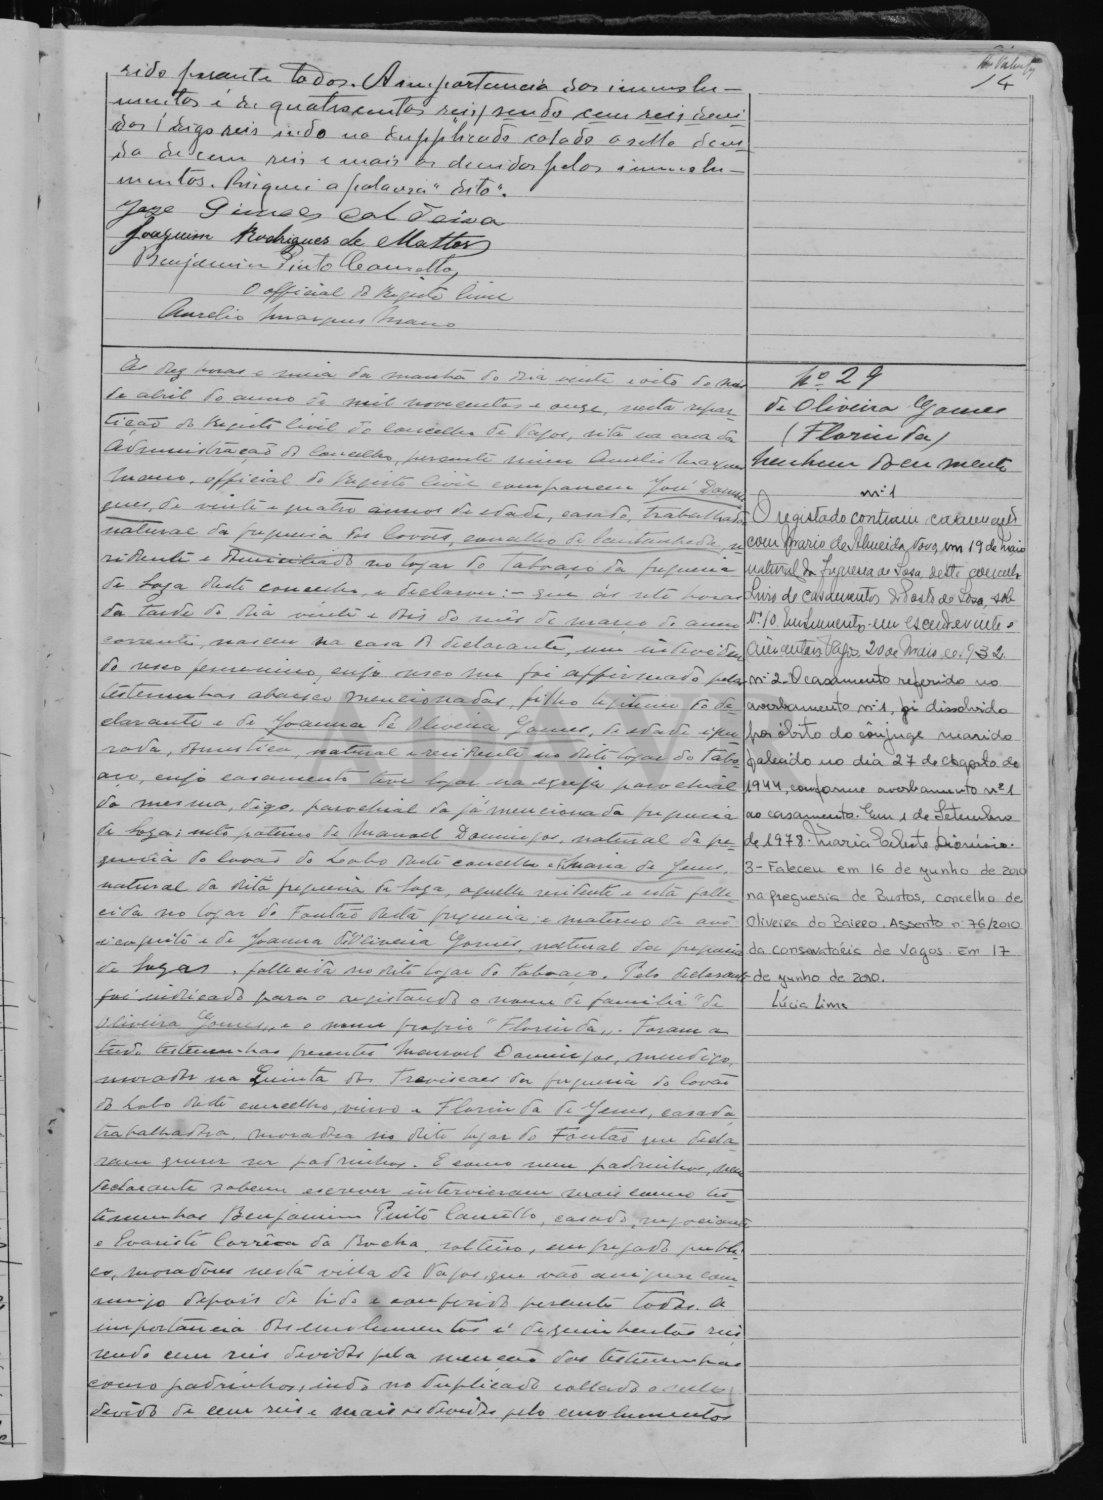 14
rido perante todos. A importancia dos imolu-
mentos é de quatrocentos reis, sendo cem reis devi-
dos, digo reis indo no dupplicado colado o sello devi-
do de cem reis e mais os devidos pelos imolu-
mentos. Risquei a palavra "dito".
Joze Gomes Caldeira
Joaquim Rodrigues de Mattos
Benjamim Pinto Camello
O official do Registo Civil
Aurelio Marques Mano
Ás dez horas e meia da manhã do dia vinte e oito do mez
de abril do anno de mil novecentos e onze, nesta repar-
tição do Registo Civil do Concelho de Vagos, sita na casa da
Administração do Concelho, perante mim Aurelio Marques
Mano, official do Registo Civil compareceu José Domin-
gues, de vinte e quatro annos de edade, casado, trabalhador
natural da freguesia dos Covões, concelho de Cantanhede, re-
sidente e domiciliado no logar do Taboaço da freguesia
de Soza deste concelho, e declarou: - que ás sete horas
da tarde do dia vinte e dois do mês de março do anno
corrente, nasceu na casa do declarante, um individuo
do sexo femenino, cujo sexo me foi affirmado pelas
testemunhas abaixo mencionadas, filho legitimo do de-
clarante e de Joanna de Oliveira Gomes, de edade igno-
rada, domestica, natural e residente no dito logar do Tabo-
aço, cujo casamento teve logar na egreja parochial
da mesma, digo, parochial da já mencionada freguesia
de Soza; neto paterno de Manoel Domingos, natural da fre-
guesia do Covão do Lobo deste concelho e Maria de Jesus,
natural da dita freguesia de Soza, aquelle residente e esta falle-
cida no logar do Fontão desta freguesia: e materno de avô
incognito e de Joanna d'Oliveira Gomes natural da freguesia
de Soza, fallecida no dito logar do Taboaço. Pelo declarante
foi indicado para o registando o nome de familia "de
Oliveira Gomes" e o nome proprio "Florinda". Foram a
tudo testemunhas presentes Manoel Domingos, mendigo,
morador na Quinta dos Troviscaes da freguesia do Covão
do Lobo deste concelho, viuvo e Florinda de Jesus, casada,
trabalhadora, moradora no dito logar do Fontão que decla-
ram querer ser padrinhos. E como nem padrinhos, nem
declarante sabem escrever intervieram mais como tes-
temunhas Benjamim Pinto Camello, casado, negociante
e Evaristo Corrêa da Rocha, solteiro, empregado publi-
co, moradores nesta villa de Vagos, que vão assignar com-
migo depois de lido e conferido perante todos. A
importancia dos emolumentos é de quinhentos reis
sendo cem reis devidos pela menção das testemunhas
como padrinhos, indo no duplicado collado o sello
devido de cem reis e mais os devidos pelo emolumentos
Nº 29
de Oliveira Gomes
(Florinda)
Nenhum documento
nº 1
O registado contraiu casamento
com Mario de Almeida Novo, em 19 de Maio
natural da freguesia de Sosa, deste concelho
Livro de casamentos do Posto de Sosa, sob
nº 10. Emolumento um escudo e vinte e
cinco centavos. Vagos 20 de Maio de 1932
nº 2. O casamento referido no
averbamento nº 1, foi dissolvido
por óbito do cônjuge marido
falecido no dia 27 de Agosto de
1944, conforme averbamento nº 1
ao casamento. Em 1 de Setembro
de 1978. Maria Celeste Dionísio.
3- Faleceu em 16 de junho de 2010
na freguesia de Bustos, concelho de
Oliveira do Bairro. Assento nº 76/2010
da Conservatória de Vagos. Em 17
de junho de 2010.
Lúcia Lima